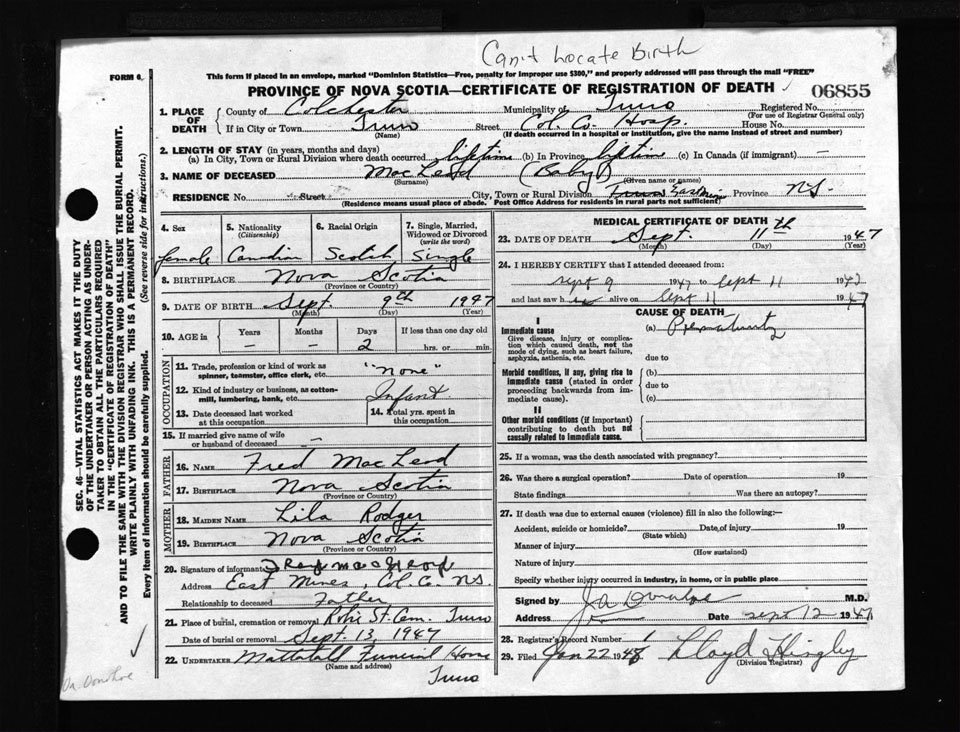 Can't Locate Birth
FORM 6
This form if placed in an envelope, marked "Dominion Statistics—Free, penalty for improper use $300," and properly addressed will pass through the mail "FREE"
PROVINCE OF NOVA SCOTIA—CERTIFICATE OF REGISTRATION OF DEATH
06855
1. PLACE OF DEATH
County of Colchester Municipality of Truro Registered No.
(For use of Registrar General only)
If in City or Town Truro Street Col. Co. Hosp. House No.
(Name) (If death occurred in a hospital or institution, give the name instead of street and number)
2. LENGTH OF STAY (in years, months and days)
(a) In City, Town or Rural Division where death occurred lifetime (b) In Province lifetime (c) In Canada (if immigrant) —
3. NAME OF DECEASED MacLeod (Baby)
(Surname) (Given name or names)
RESIDENCE No. Street City, Town or Rural Division Province N.S.
(Residence means usual place of abode. Post Office Address for residents in rural parts not sufficient)
4. Sex
5. Nationality (Citizenship)
6. Racial Origin
7. Single, Married, Widowed or Divorced (write the word)
female Canadian Scotish Single
8. BIRTHPLACE Nova Scotia
(Province or Country)
9. DATE OF BIRTH Sept. 9th 1947
(Month) (Day) (Year)
10. AGE in Years Months Days If less than one day old
— — 2 hrs. or min.
OCCUPATION
11. Trade, profession or kind of work as spinner, teamster, office clerk, etc. "none"
12. Kind of industry or business, as cotton-mill, lumbering, bank, etc. Infant
13. Date deceased last worked at this occupation
14. Total yrs. spent in this occupation
15. If married give name of wife or husband of deceased —
FATHER
16. NAME Fred MacLeod
17. BIRTHPLACE Nova Scotia
(Province or Country)
MOTHER
18. MAIDEN NAME Lila Rodger
19. BIRTHPLACE Nova Scotia
(Province or Country)
20. Signature of informant
Address East Mines, Col. Co. N.S.
Relationship to deceased Father
21. Place of burial, cremation or removal Robie St. Cem. Truro
Date of burial or removal Sept. 13, 1947
22. UNDERTAKER Mattatall Funeral Home
(Name and address)
Truro
MEDICAL CERTIFICATE OF DEATH
23. DATE OF DEATH Sept. 11th 1947
(Month) (Day) (Year)
24. I HEREBY CERTIFY that I attended deceased from:
Sept 9 1947 to Sept 11 1947
and last saw h er alive on Sept 11 1947
CAUSE OF DEATH
I
Immediate cause
Give disease, injury or complication which caused death, not the mode of dying, such as heart failure, asphyxia, asthenia, etc.
(a) Prematurity
due to
Morbid conditions, if any, giving rise to immediate cause (stated in order proceeding backwards from immediate cause).
(b)
due to
(c)
II
Other morbid conditions (if important) contributing to death but not causally related to immediate cause.
25. If a woman, was the death associated with pregnancy?
26. Was there a surgical operation? Date of operation 19
State findings Was there an autopsy?
27. If death was due to external causes (violence) fill in also the following:—
Accident, suicide or homicide? Date of injury 19
(State which)
Manner of injury
(How sustained)
Nature of injury
Specify whether injury occurred in industry, in home, or in public place
Signed by J A Donahoe M.D.
Address Date Sept 12 1947
28. Registrar's Record Number 1
29. Filed Jan 22 1948 Lloyd Hingley
(Division Registrar)
SEC. 46—VITAL STATISTICS ACT MAKES IT THE DUTY
OF THE UNDERTAKER OR PERSON ACTING AS UNDER-
TAKER TO OBTAIN ALL THE PARTICULARS REQUIRED
IN THE "CERTIFICATE OF REGISTRATION OF DEATH"
AND TO FILE THE SAME WITH THE DIVISION REGISTRAR WHO SHALL ISSUE THE BURIAL PERMIT.
WRITE PLAINLY WITH UNFADING INK. THIS IS A PERMANENT RECORD.
Every item of information should be carefully supplied. (See reverse side for instructions.)
Dr. Donohoe